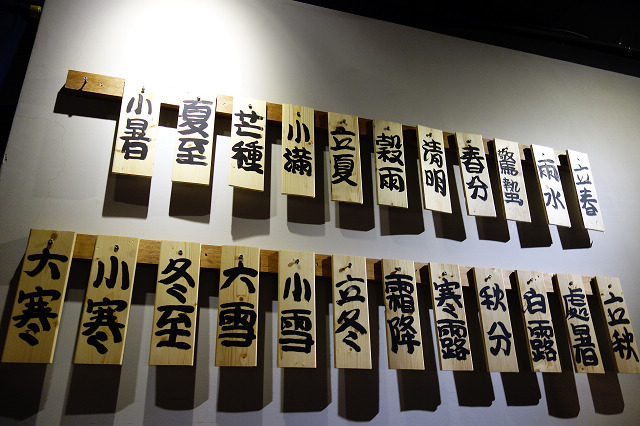 立春
雨水
驚蟄
春分
清明
穀雨
立夏
小滿
芒種
夏至
小暑
立秋
處暑
白露
秋分
寒露
霜降
立冬
小雪
大雪
冬至
小寒
大寒